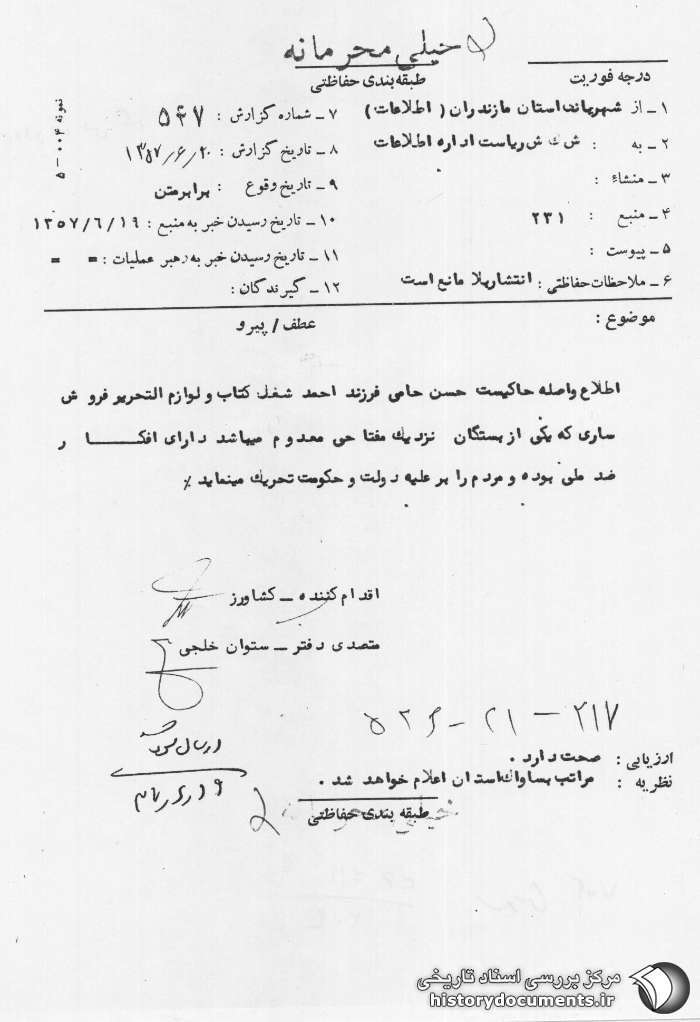 خیلی محرمانه
طبقه‌بندی حفاظتی
درجه فوریت
نمونه ۰۰۴ – ۵
۱ – از شهربانی استان مازندران ( اطلاعات )
۲ – به : ش ك ش ریاست اداره اطلاعات
۳ – منشاء :
۴ – منبع : ۲۳۱
۵ – پیوست :
۶ – ملاحظات حفاظتی : انتشار بلا مانع است
۷ – شماره گزارش : ۵۴۷
۸ – تاریخ گزارش : ۱۳۵۷/۶/۲۰
۹ – تاریخ وقوع : برابر متن
۱۰ – تاریخ رسیدن خبر به منبع : ۱۳۵۷/۶/۱۹
۱۱ – تاریخ رسیدن خبر به رهبر عملیات : = =
۱۲ – گیرندگان :
موضوع :
عطف / پیرو
اطلاع واصله حاکیست حسن حامی فرزند احمد شغل کتاب و لوازم التحریر فروش
ساری که یکی از بستگان نزدیك مفتاحی معدوم میباشد دارای افکار
ضد ملی بوده و مردم را بر علیه دولت و حکومت تحریك مینماید ٪
اقدام کننده – کشاورز
متصدی دفتر – ستوان خلجی
۲۱۷ – ۲۱ –
ارسال گردد
ارزیابی : صحت دارد .
نظریه : مراتب بساواك استان اعلام خواهد شد .
خیلی محرمانه
طبقه بندی حفاظتی
مرکز بررسی اسناد تاریخی
historydocuments.ir